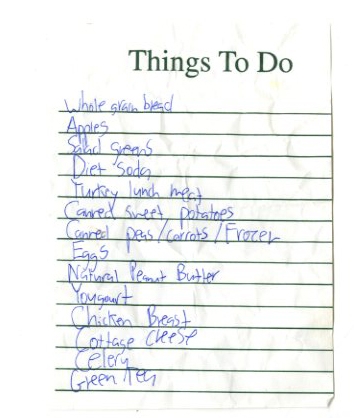 Things To Do
Whole grain bread
Apples
Salad greens
Diet Soda
Turkey lunch meat
Canned sweet potatoes
Canned peas/carrots/Frozen
Eggs
Natural Peanut Butter
Yougourt
Chicken Breast
Cottage cheese
Celery
Green Tea